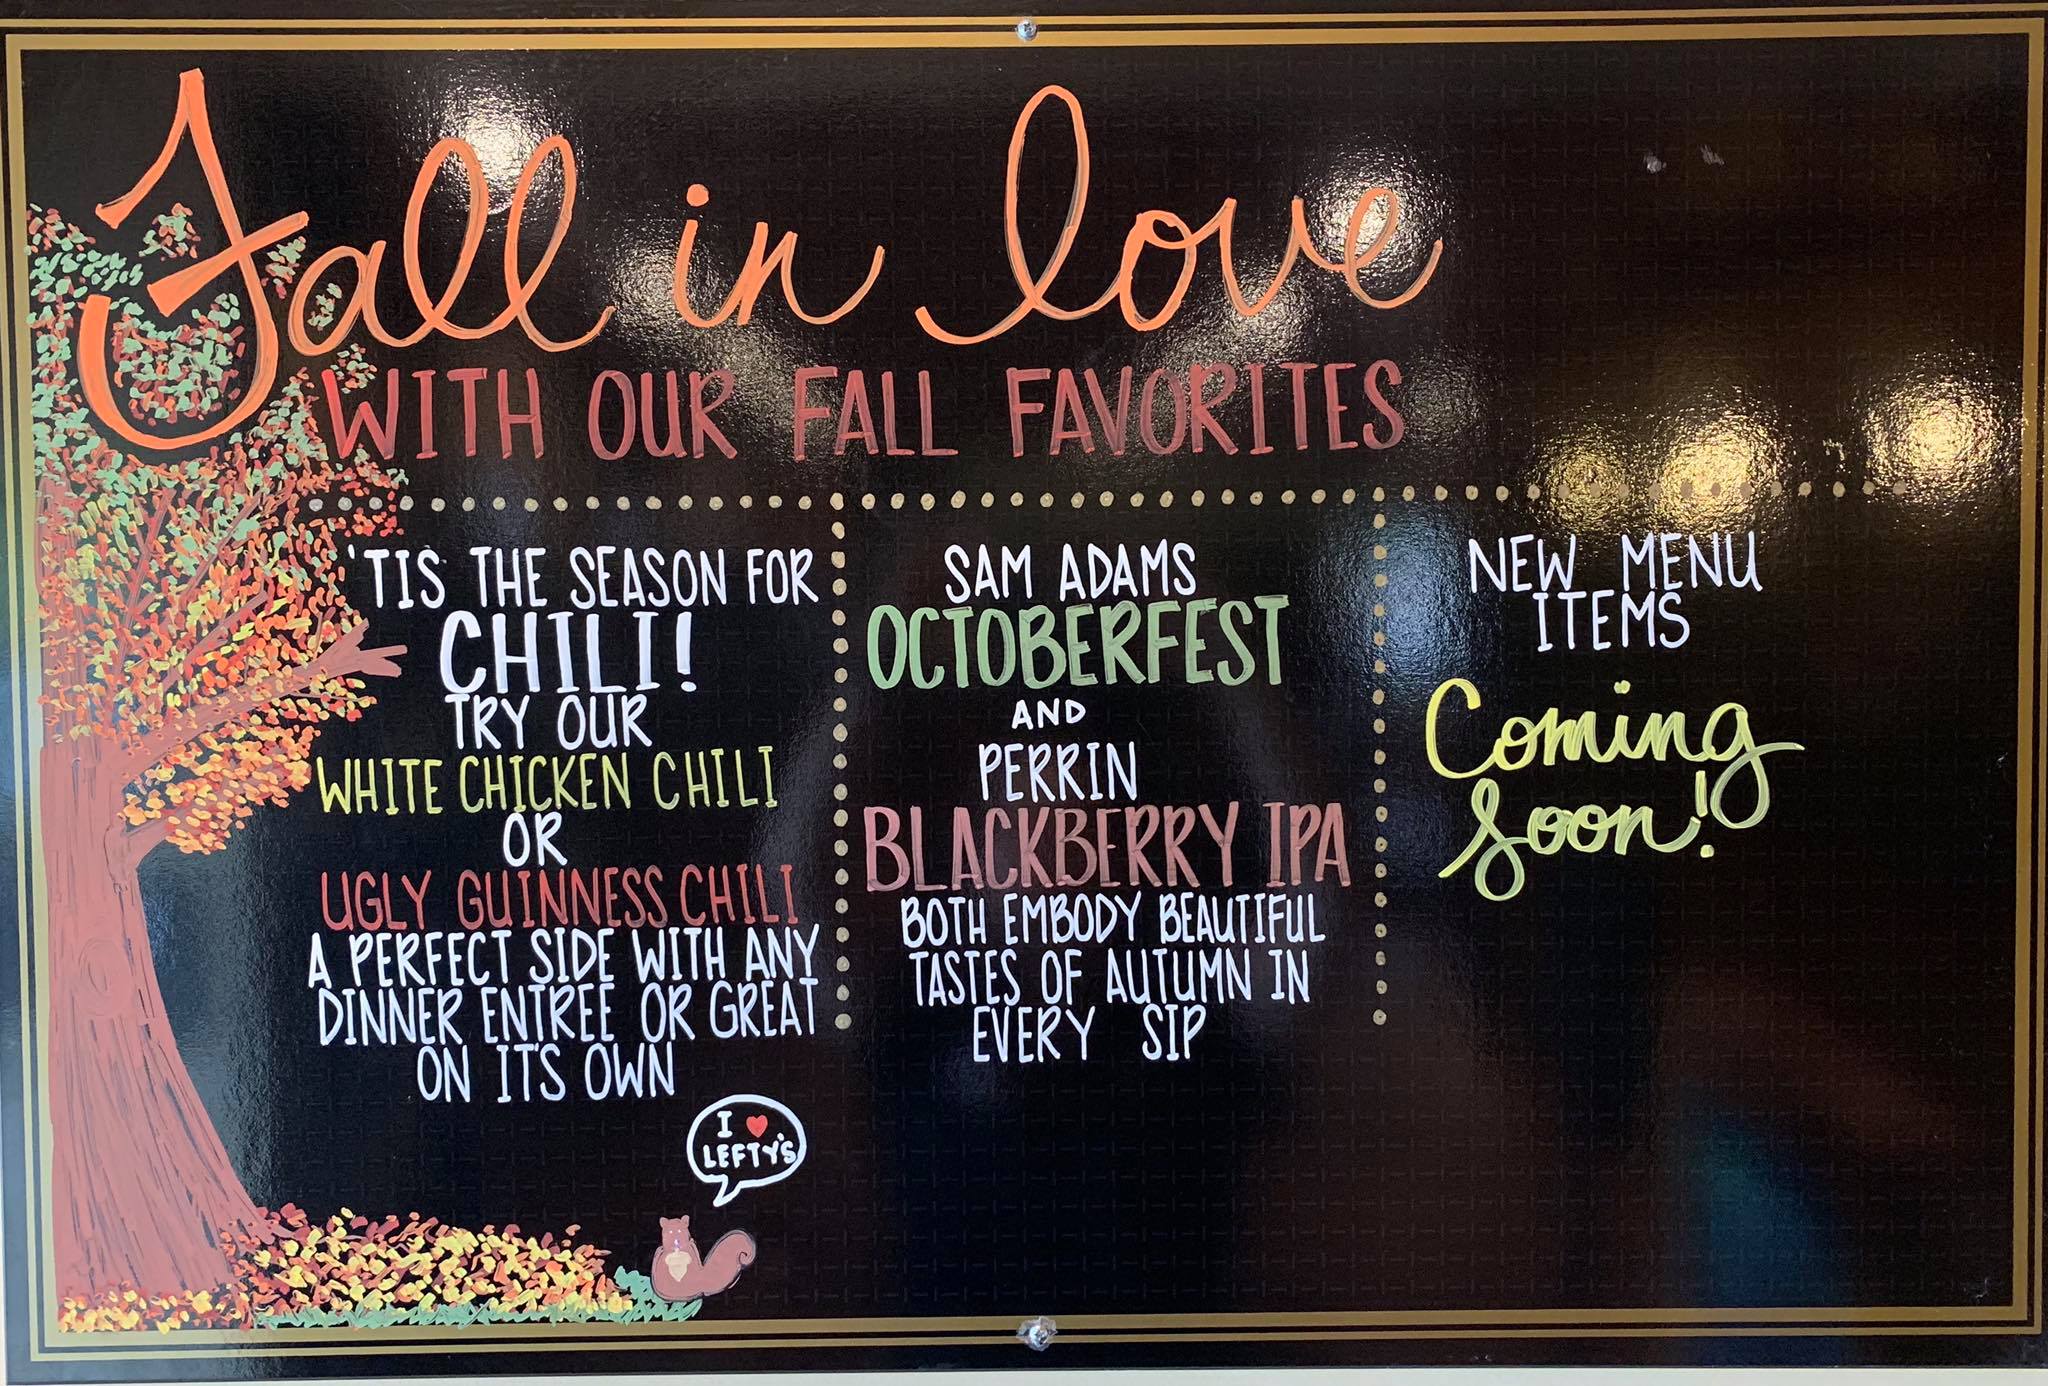 Fall in love
WITH OUR FALL FAVORITES
'TIS THE SEASON FOR
CHILI!
TRY OUR
WHITE CHICKEN CHILI
OR
UGLY GUINNESS CHILI
A PERFECT SIDE WITH ANY
DINNER ENTREE OR GREAT
ON IT'S OWN
I ♥
LEFTY'S
SAM ADAMS
OCTOBERFEST
AND
PERRIN
BLACKBERRY IPA
BOTH EMBODY BEAUTIFUL
TASTES OF AUTUMN IN
EVERY SIP
NEW MENU
ITEMS
Coming
Soon!